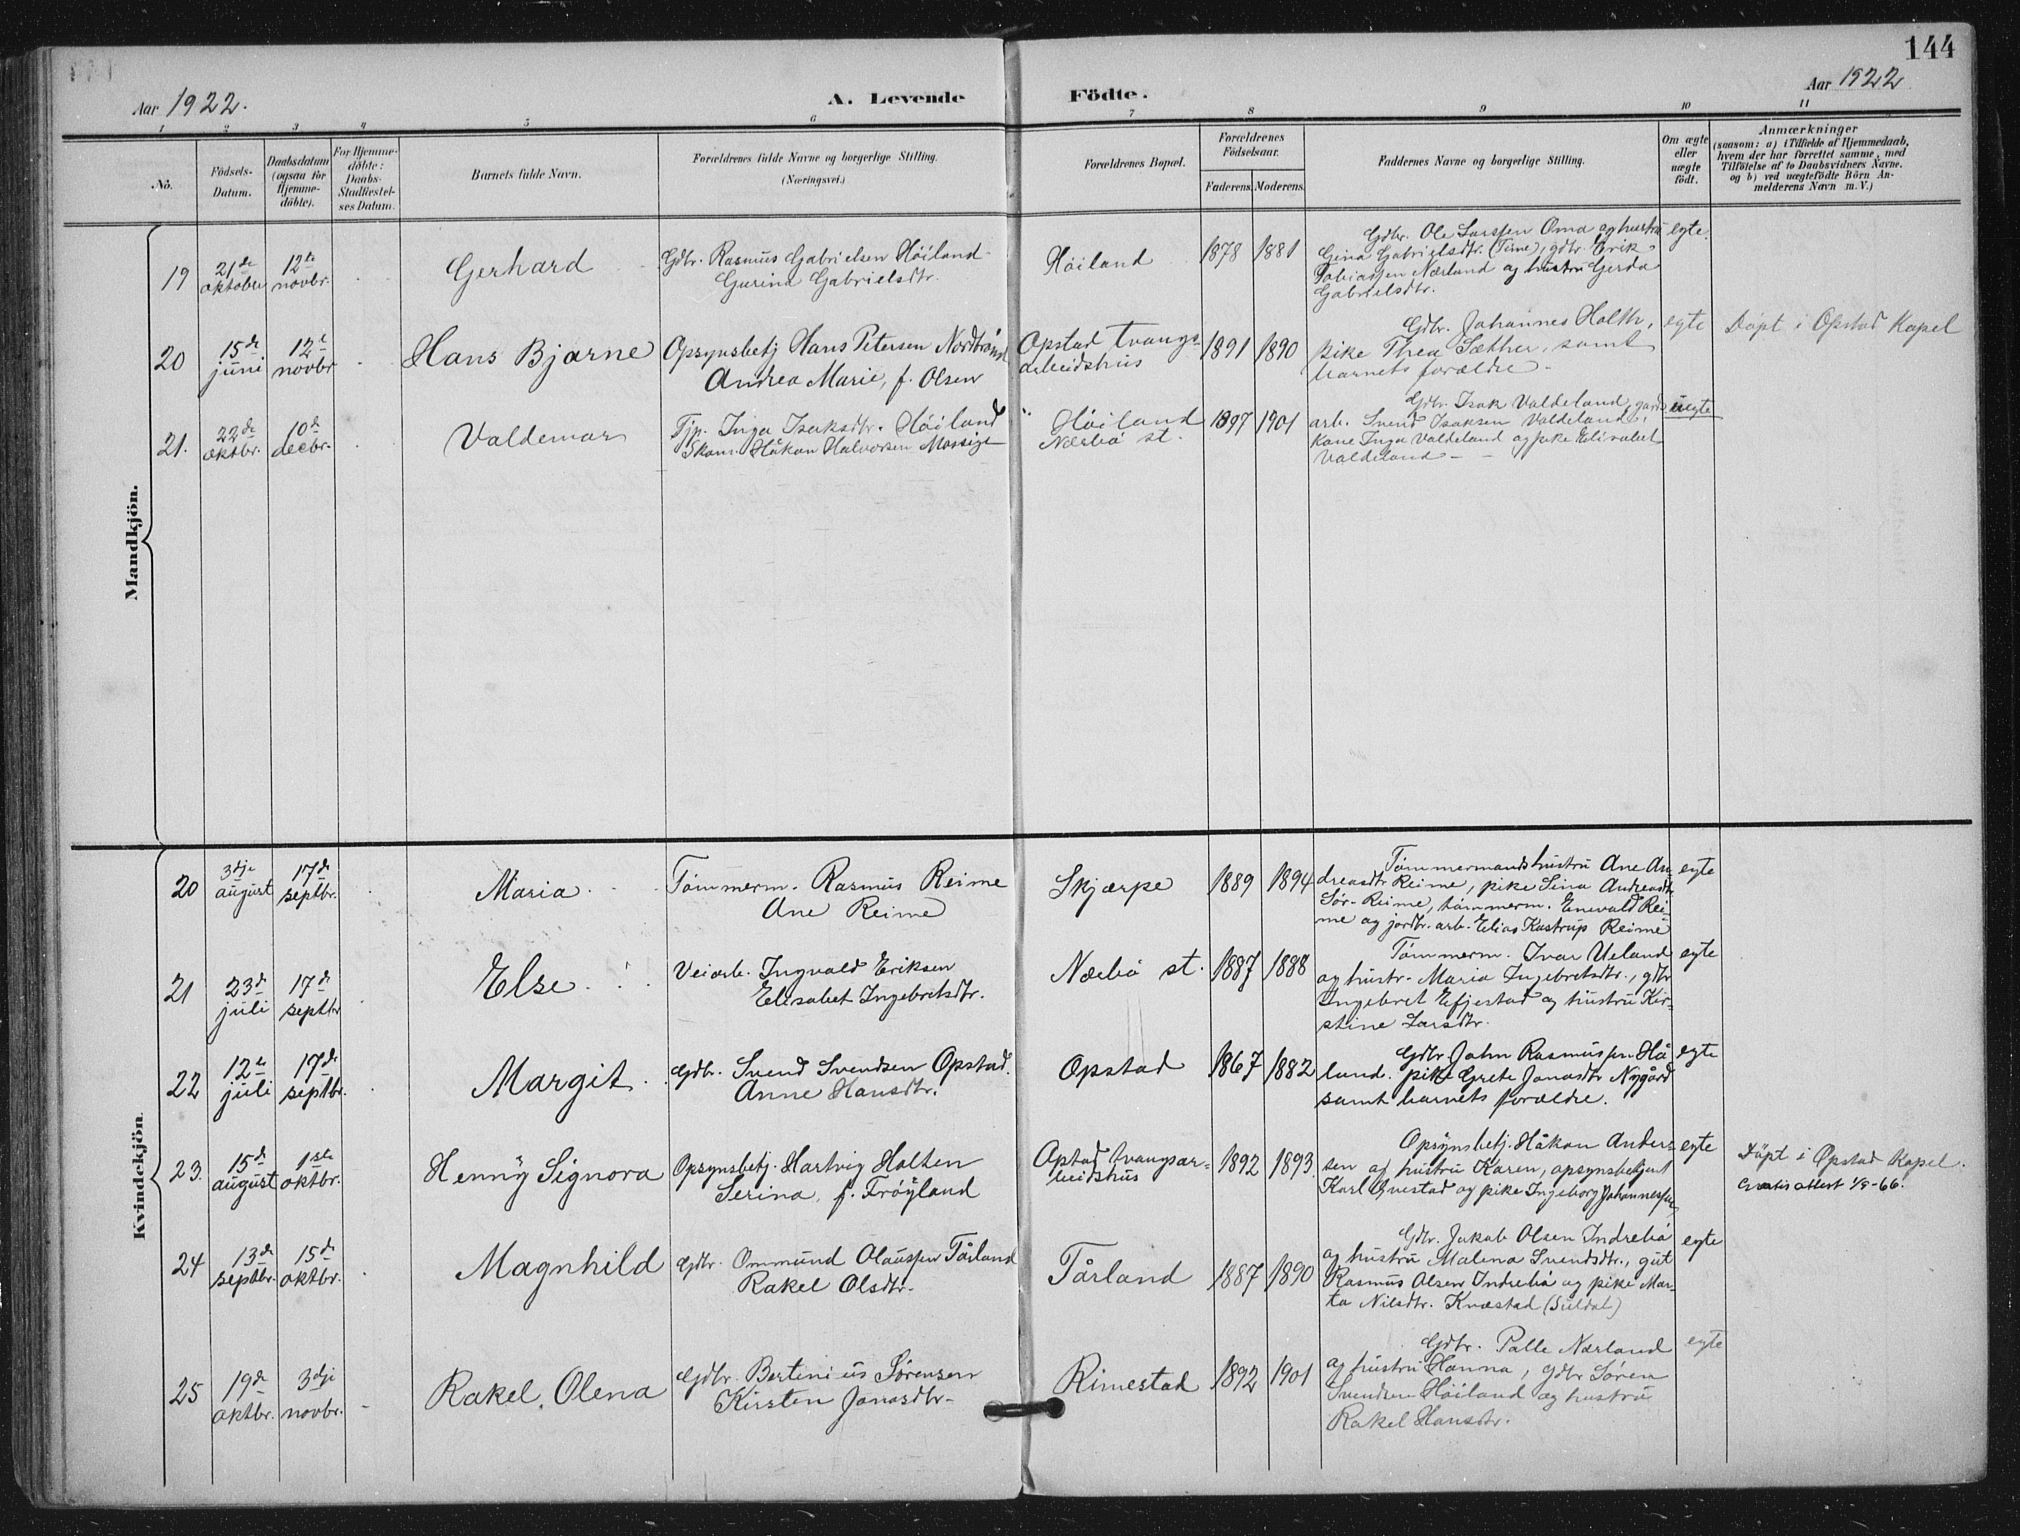 144
Aar 1922.
A. Levende Födte.
Aar 1922
1 2 3 4 5 6 7 8 9 10 11
No.
Födsels-
Datum.
Daabsdatum
(ogsaa for
Hjemme-
döbte).
For Hjemme-
döbte:
Daabs-
Stadfæstel-
ses Datum.
Barnets fulde Navn.
Forældrenes fulde Navne og borgerlige Stilling.
(Næringsvei.)
Forældrenes Bopæl.
Forældrenes
Födselsaar.
Faderens. Moderens.
Faddernes Navne og borgerlige Stilling.
Om ægte
eller
uægte
födt.
Anmærkninger
(saasom: a) i Tilfælde af Hjemmedaab,
hvem der har forrettet samme, med
Tilföielse af to Daabsvidners Navne.
og b) ved uægtefödte Börn An-
melderens Navn m. V.)
Mandkjön.
19
21de
oktober
12te
novbr.
Gerhard
Gdbr. Rasmus Gabrielsen Höiland
Gurina Gabrielsdtr.
Höiland
1878 1881
Gdbr. Ole Larssen Oma og hustru
Gina Gabrielsdtr. (Time), gdbr. Erik
Tobiassen Nærland og hustru Gerda
Gabrielsdtr.
egte.
20
15de
juni
12te
novbr
Hans Bjarne
Opsynsbetj Hans Petersen
Andrea Marie, f. Olsen
Opstad tvangs
arbeidshus
1891 1890
Gdbr. Johannes Holth,
pike Thea Sæther, samt
barnets forældre -
egte
Döpt i Opstad Kapel
21.
22de
oktbr.
10de
decbr.
Valdemar
Tjp. Inga Isaksdtr. Höiland
Skom. Håkon Halvorsen Mossige
Höiland
Nærbö st.
1897 1901
Gdbr. Isak Valdeland, gards
arb. Svend Isaksen Valdeland,
kone Inga Valdeland og pike Elisabet
Valdeland -
uegte
Kvindekjön
20
3dje
august
17de
septbr.
Maria
Tömmerm. Rasmus Reime
Ane Reime
Skjærpe
1889 1894
Tömmermandshustru Ane An-
dreasdtr Reime, pike Sina Andreasdtr
Sör-Reime, tömmerm. Enevald Rei-
me og jordbr. arb. Elias Kastrup Reime
egte
21
23de
juli
17de
septbr
Else
Veiarb. Ingvald Eriksen
Elisabet Ingebretsdtr.
Nærbö st.
1887 1888
Tömmerm. Ivar Ueland
og hustr. Maria Ingebretsdtr., gdbr
Ingebret Efjestad og hustru Kir-
stine Larsdtr.
egte
22
12te
juli
17de
septbr.
Margit
Gdbr. Svend Svendsen Opstad.
Anne Hansdtr.
Opstad
1867 1882
Gdbr John Rasmussen Hå
land. pike Grete Jonasdtr Nygård
samt barnets forældre.
egte
23.
15de
august
1ste
oktbr.
Henny Signora
Opsynsbetj. Hartvig Holten
Serina, f. Fröyland
Opstad tvangsar-
beidshus
1892 1893.
Opsynsbetj. Håkon Ander-
sen og hustru Karen, opsynsbetjent
Karl Qvestad og pike Ingeborg Johannessen
egte
Döpt i Opstad Kapel.
Gratis attest 1/9-66.
24
13de
septbr.
15de
oktbr.
Magnhild
Gdbr. Ommund Olaussen Tårland
Rakel Olsdtr.
Tårland
1887 1890
Gdbr. Jakob Olsen Indrebö
og hustru Malena Svendsdtr., gut
Rasmus Olsen Indrebö og pike Mar-
ta Nilsdtr. Kvæstad (Suldal)
egte
25
19de
oktbr.
3dje
novbr.
Rakel Olena
Gdbr. Bertinius Sörensen
Kirsten Jonasdtr-
Rimestad
1892 1901
Gdbr. Palle Nærland
og hustru Hanna, gdbr Sören
Svendsen Höiland og hustru
Rakel Hansdtr.
egte